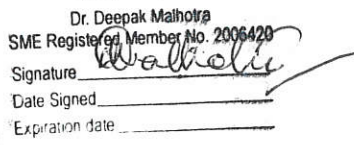 Dr. Deepak Malhotra
SME Registered Member No. 2006420
Signature DMalhotra
Date Signed
Expiration date